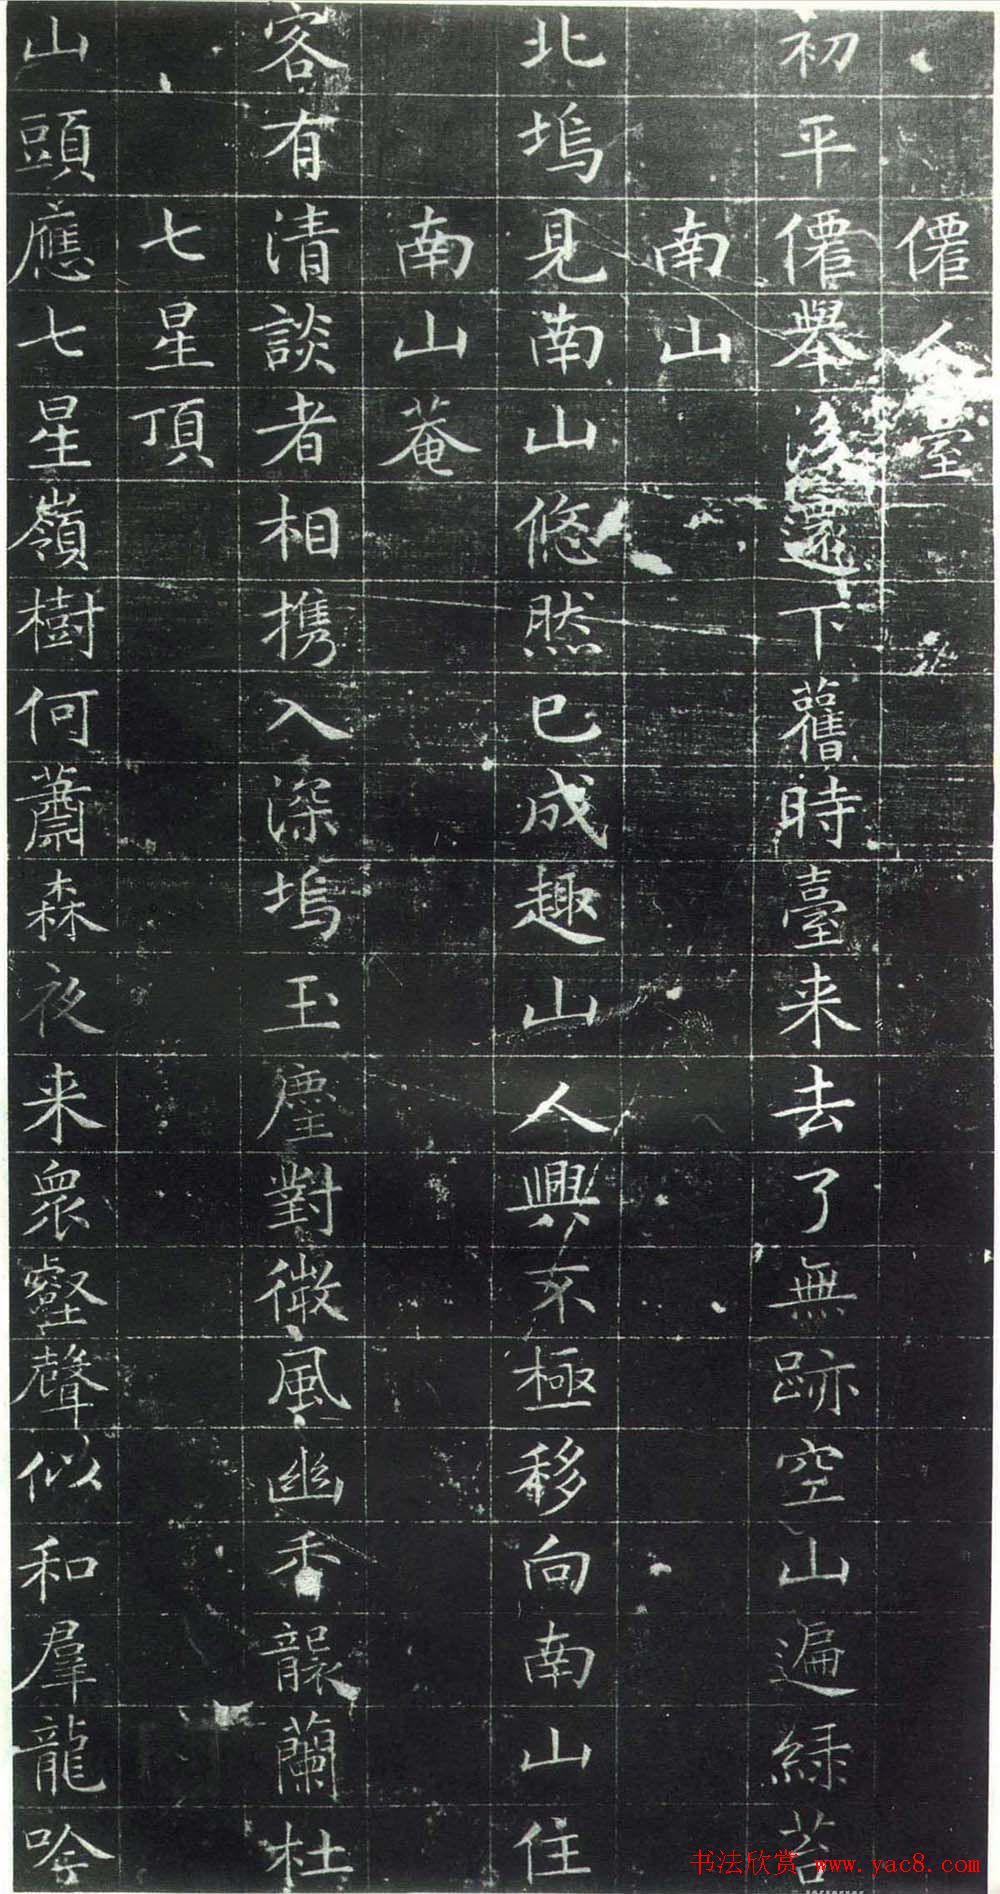 僊人臺
初平僊舉後還下舊時臺来去了無跡空山遍緑苔
南山
北塢見南山悠然已成趣山人興不極移向南山住
南山菴
客有清談者相携入深塢玉麈對微風幽香襲蘭杜
七星頂
山頭應七星嶺樹何蕭森夜来衆壑聲似和羣龍吟
书法欣赏 www.yac8.com